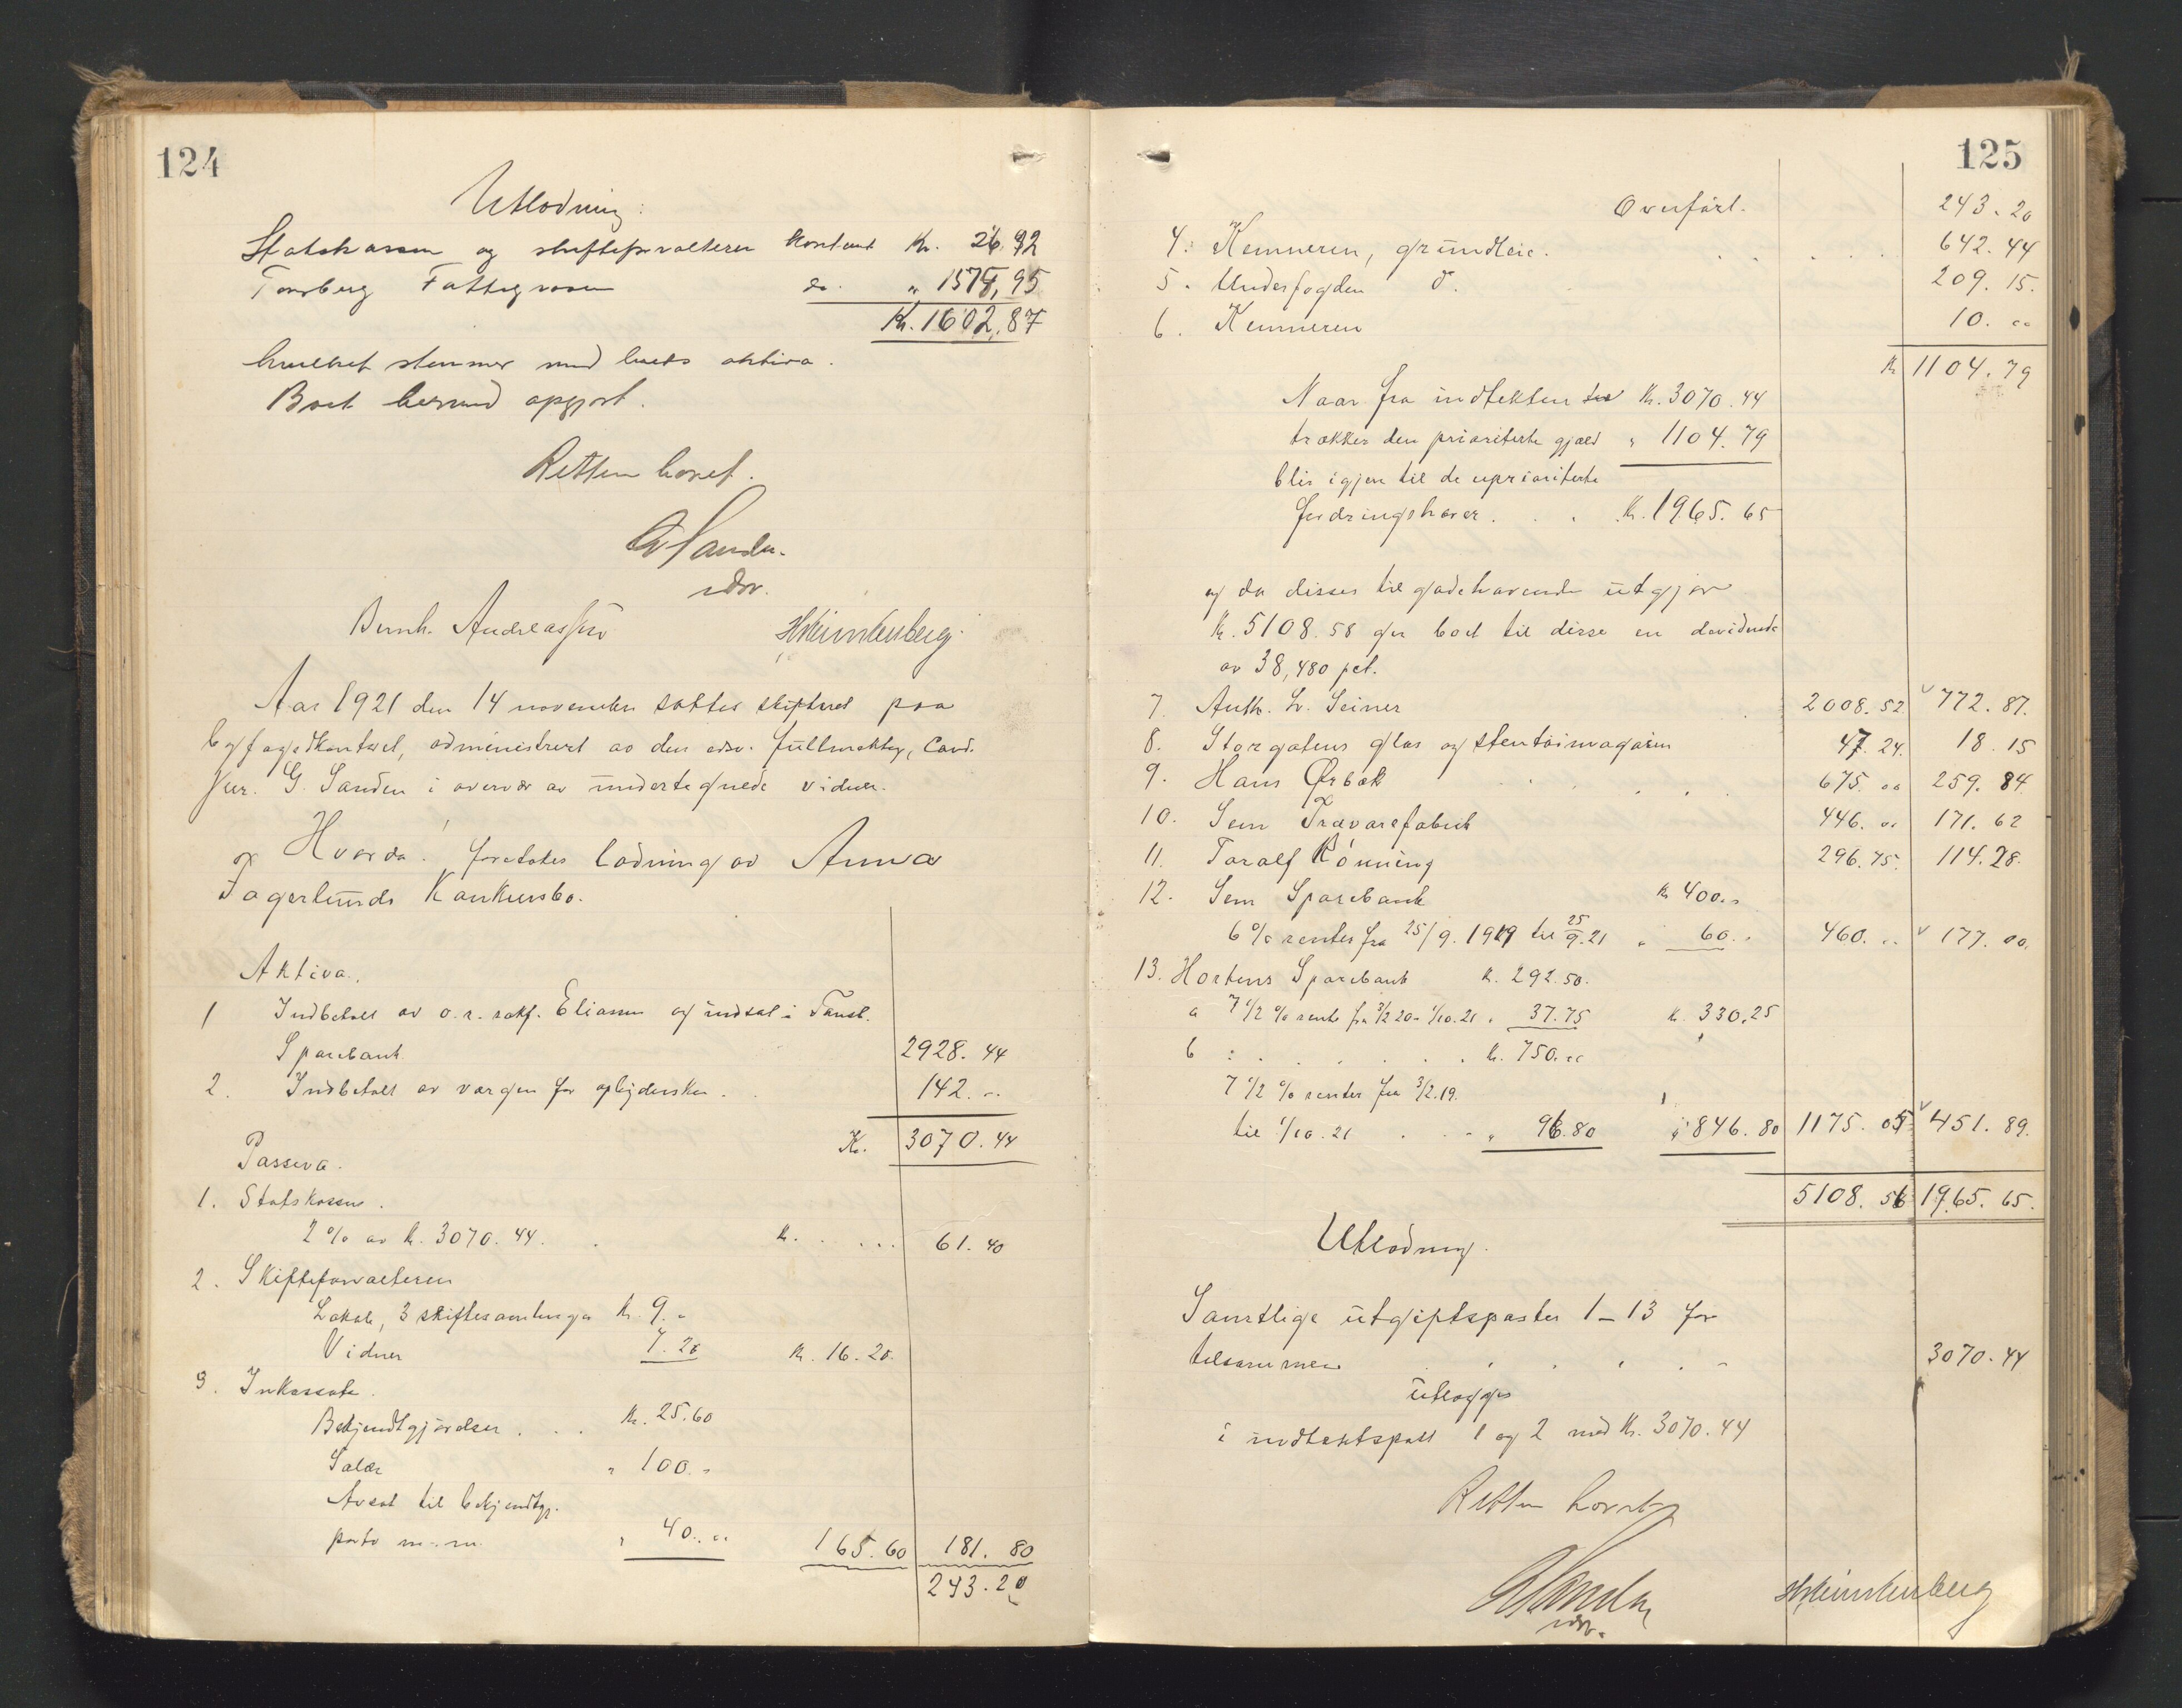 124
Utlodning:
Statskassen og skifteforvalteren kontant Kr. 26.92
Tønsberg Fattigvæsen do. " 1575,95
Kr. 1602,87
hvilket stemmer med boets aktiva.
Boet dermed opgjort.
Retten hævet.
G Sanden
edsv.
Bernh. Andreassen
Aar 1921 den 14 november sattes skifteret paa
byfogedkontoret, administrert av den edsv. fullmektig, Cand.
Jur. G. Sanden i overvær av undertegnede vidner.
Hvorda! foretokes lodning av Anna
Fagerlunds Konkursbo.
Aktiva.
1 Indbetalt av o.r. sakf. Eliassen og indsat i Tønsb.
Sparebank 2928.44
2. Indbetalt avværgen for opbydersken . 142. --
K. 3070.44
Passiva.
1. Statskassen.
2 % av Kr. 3070.44. Kr. . . . . . 61.40
2. Skifteforvalteren
Lokale, 3 skiftesamlinger Kr. 9. -
Vidner 7.20 Kr. 16.20.
3. Inkassator.
Bekjendtgjørelser . . . Kr. 25.60
Salær " 100. -
Avsat til bekjendtgj.
porto m.m. " 40. -- 165.60 181.80
243.20
125
Overført. 243.20
4. Kemneren, grundleie. . . . . . 642.44
5. Underfogden d. 209.15.
6. Kemneren 10. --
Kr 1104.79
Naar fra indtekten Kr. 3070.44
trækkes den prioriterte gjæld " 1104.79
blir igjen til de uprioriterte
fordringshaver . . . Kr. 1965.65
og da disses tilgodehavende utgjør
Kr. 5108.58 gir boet til disse en dividende
av 38,480 pct.
7. Anth. L. Seiner . 2008.52 772.87.
8. Storgatens glas og stentøimagasin 47.24. 18.15
9. Hans Ørbæk . . . . 675. -- 259.84
10. Sem Trævarefabrik 446. -- 171.62
11. Toralf Rønning 296.75. 114.28.
12. Sem Sparebank Kr 400. -
6 % renter fra 25/9. 1919 til 25/9.21 " 60. - 460. -- 177.00.
13. Hortens Sparebank K. 292.50.
a 7 1/2 % rente fra 3/2 20 - 1/10.21 " 37.75 K. 330,25
b : . . . . . . K. 750. --
7 1/2 % renter fra 3/2.19.
til 1/10.21 . . - " 96.80 " 846.80 1175.05 451.89.
5108.56 1965.65.
Utlodning.
Samtlige utgiftsposter 1 - 13 for
tilsammen . . . . . 3070.44
utlægges
i indtektspost 1 og 2 med Kr. 3070.44
Retten hævet
G Sanden
edsv.